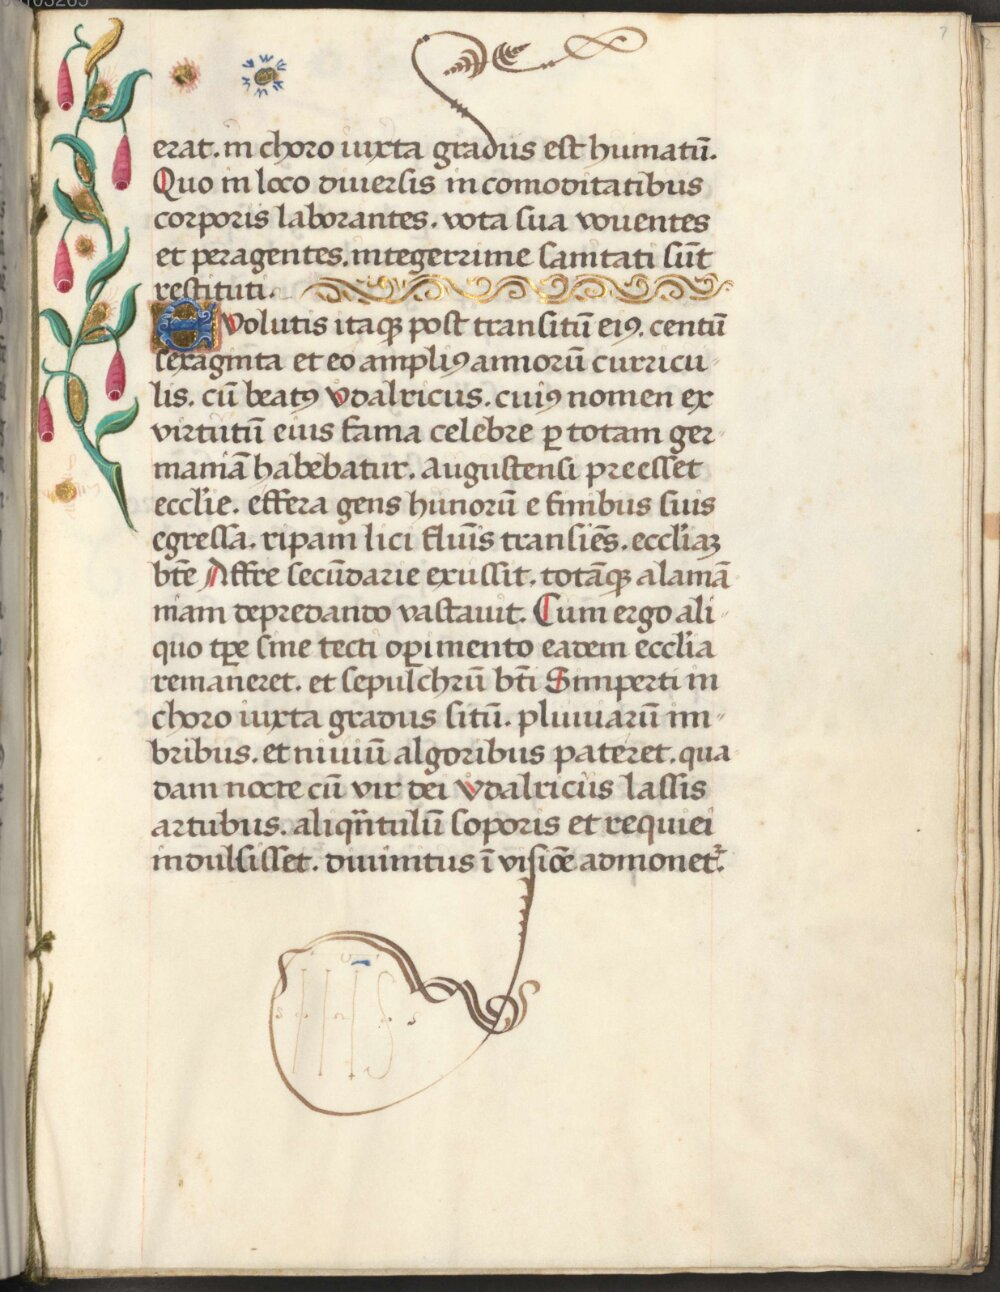 erat. in choro iuxta gradus est humatū.
Quo in loco diuersis incomoditatibus
corporis laborantes. vota sua vouentes
et peragentes. integerrime sanitati sūt
restituti.
Evolutis itaqꝫ post transitū eiꝰ. centū
sexaginta et eo ampliꝰ annorū curricu
lis. cū beatꝰ Vdalricus. cuiꝰ nomen ex
virtutū eius fama celebre ꝑ totam ger
maniā habebatur. augustensi preesset
eccl̄ie. effera gens hūnorū e finibus suis
egressa. ripam lici flūis transiēs. eccl̄iaꝫ
bt̄e Affre secūdarie exussit. totāqꝫ alamā
niam depredando vastauit. Cum ergo ali
quo tp̄e sine tecti oꝑimento eadem eccl̄ia
remaneret. et sepulchrū bt̄i Simperti in
choro iuxta gradus sitū. pluuiarū im
bribus. et niuiū algoribus pateret. qua
dam nocte cū vir dei Vdalricus lassis
artubus. aliqn̄tulū soporis et requiei
indulsisset. diuinitus ī visiōe admonet᷑.
7